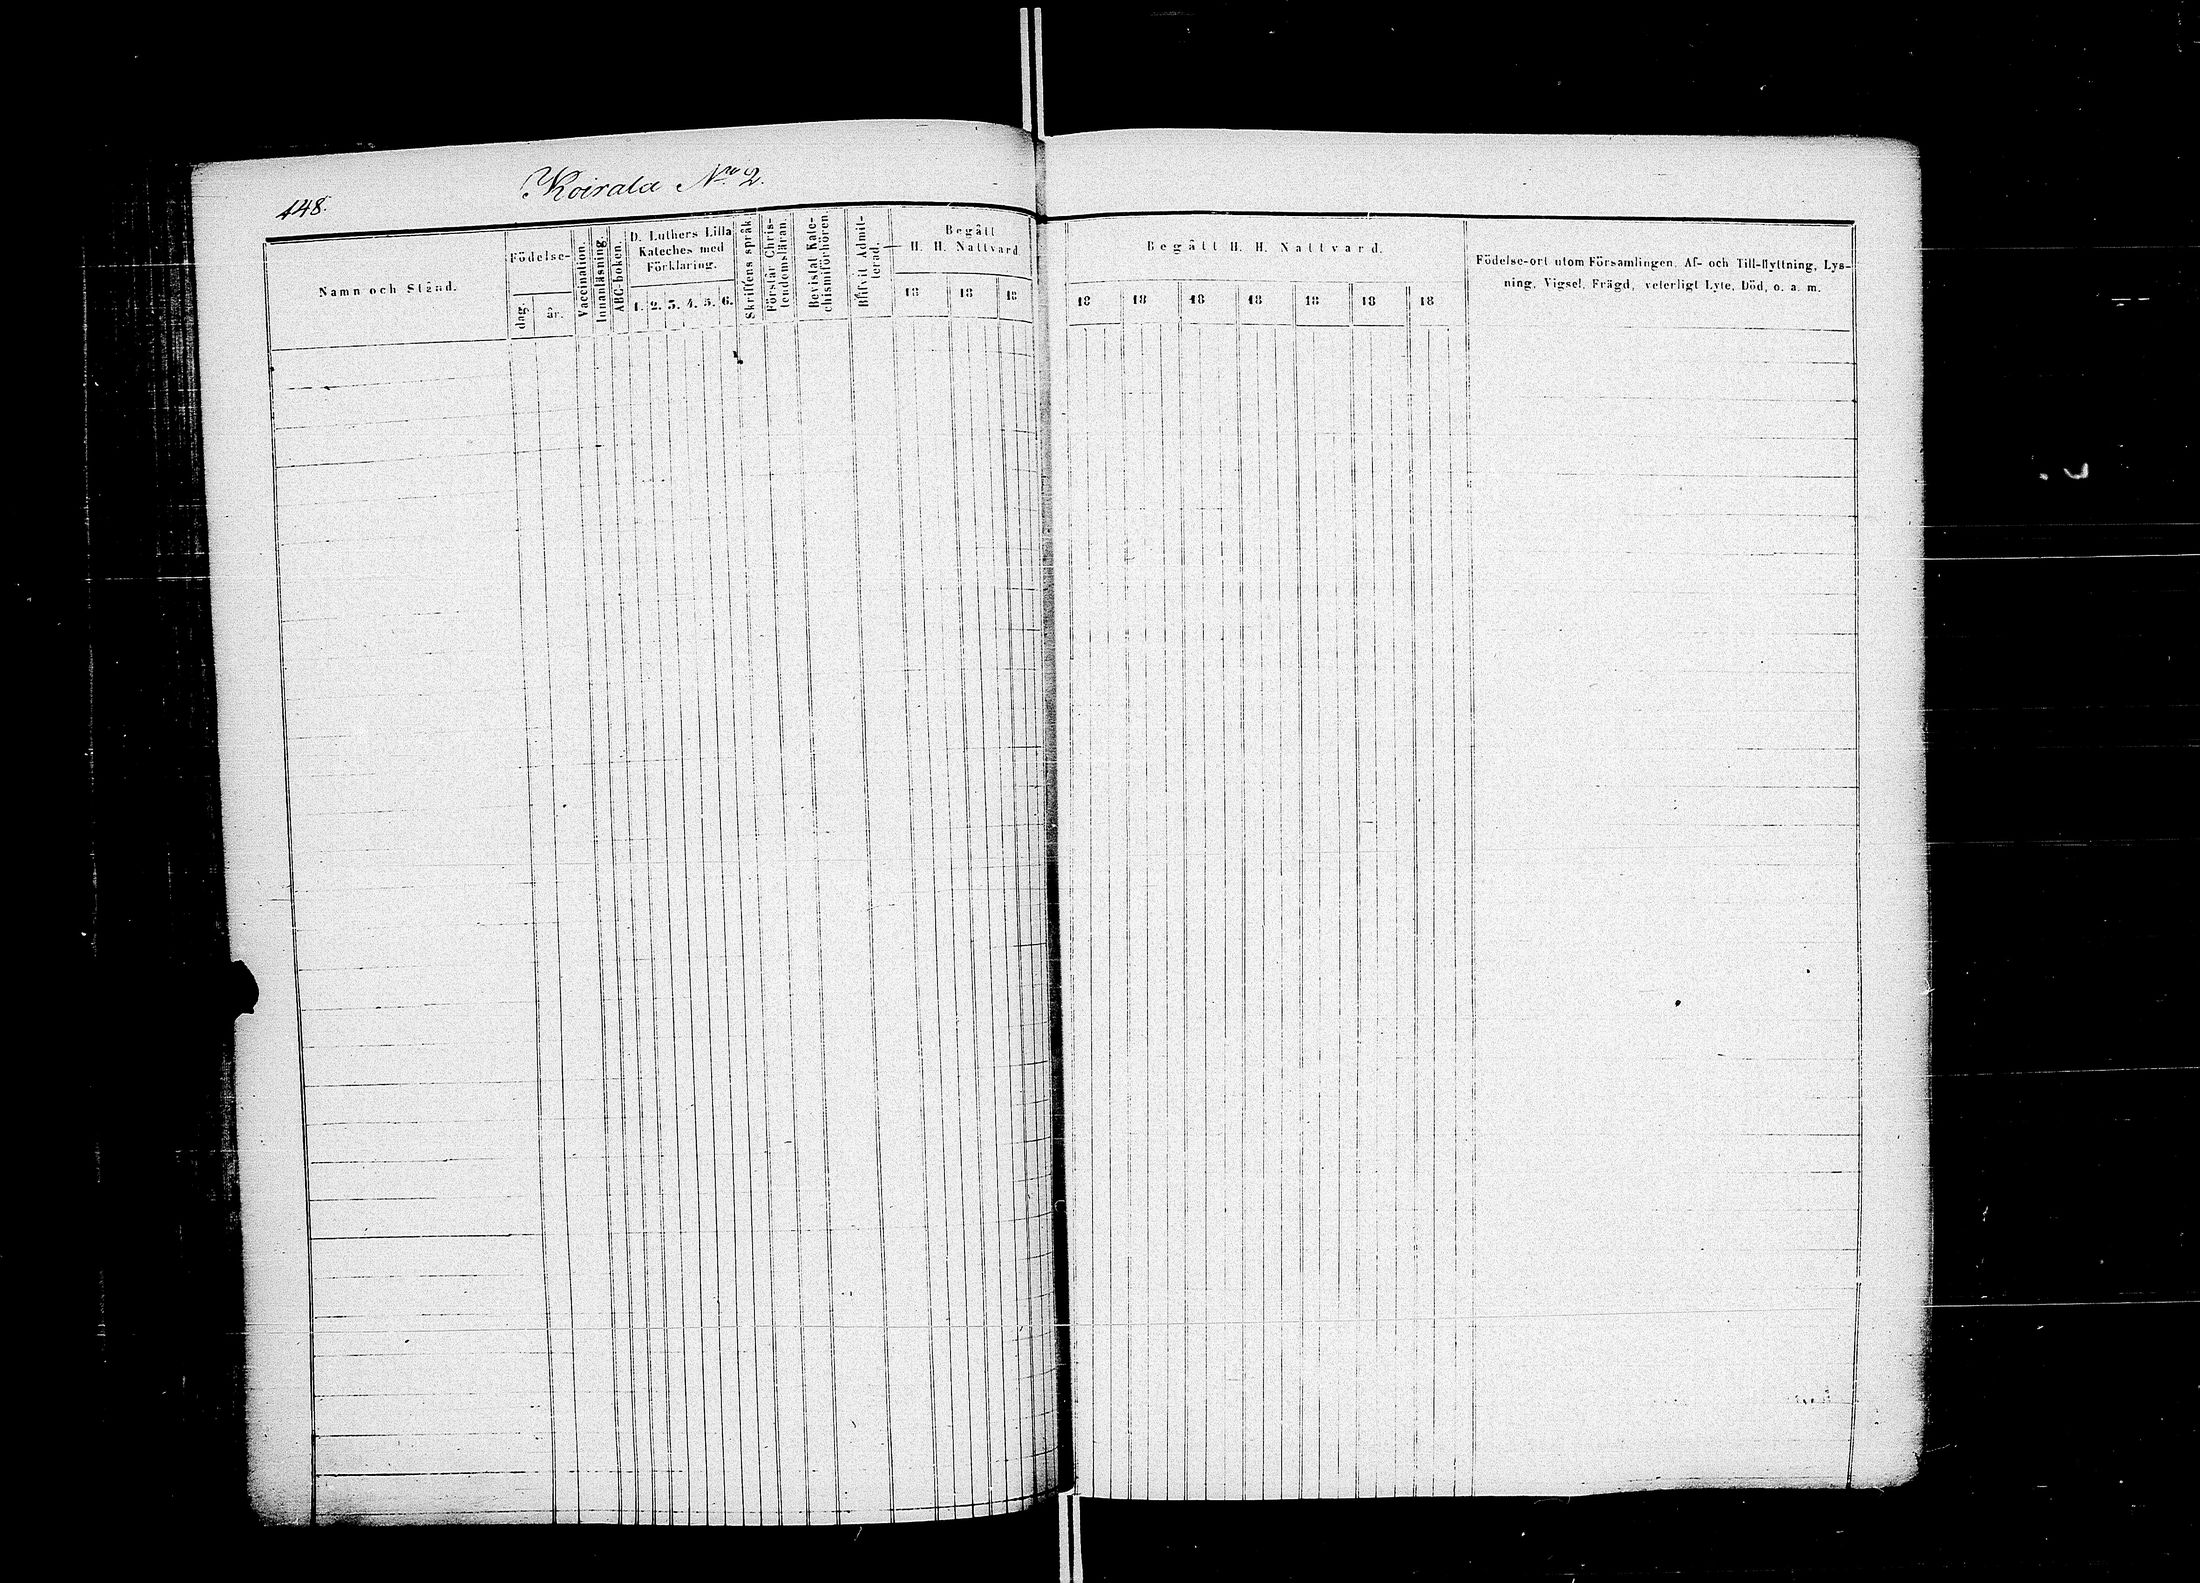 148.
Koirala No 2.
Namn och Stånd.
Födelse-
dag.
år.
Vaccination.
Innanläsning.
ABC-boken.
D. Luthers Lilla
Kateches med
Förklaring.
1. 2. 3. 4. 5. 6.
Skriftens språk
Förstår Chris-
tendomsläran.
Bevistat Kate-
chismiförhören
Blifvit Admit-
terad.
Begått
H. H. Nattvard
18 18 18
Begått H. H. Nattvard.
18 18 18 18 18 18 18
Födelse-ort utom Församlingen, Af- och Till-flyttning, Lys-
ning, Vigsel, Frägd, veterligt Lyte, Död, o. a. m.